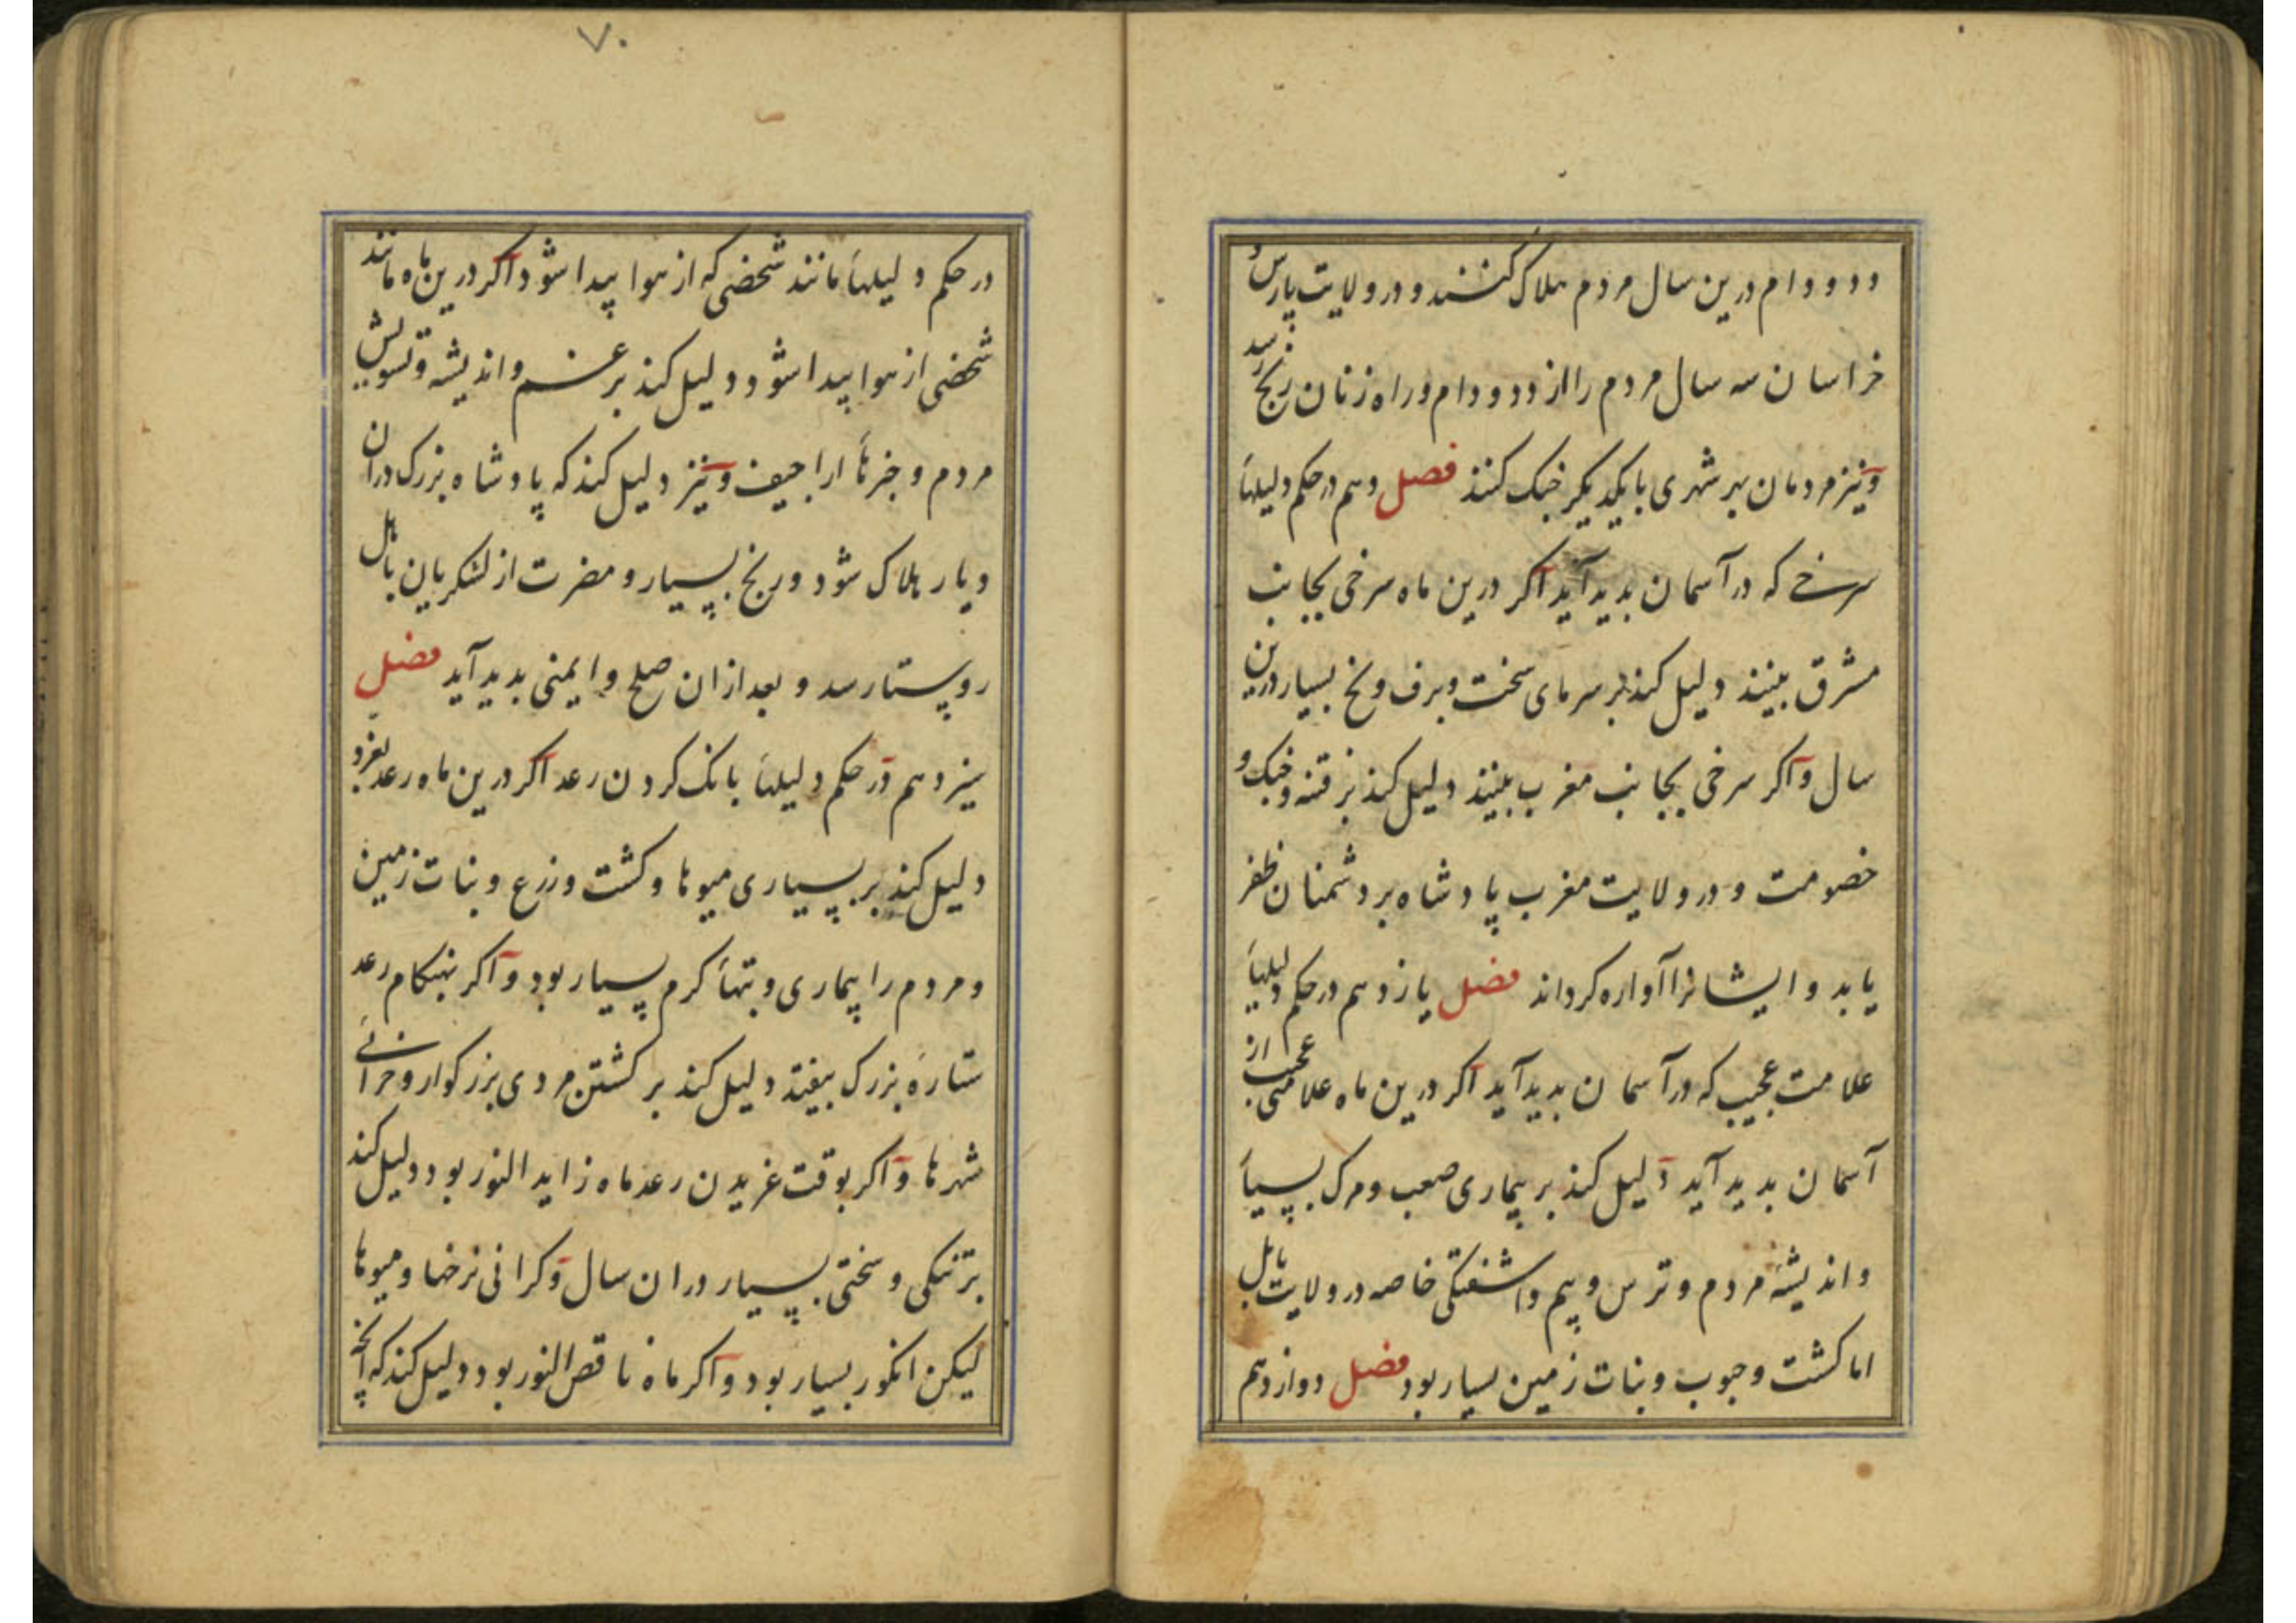 ودو ودام درین سال مردم هلاک کنند و در ولایت پارس و
خراسان سه سال مردم را از دد و دام و راه زنان رنج رسد
و نیز مردمان هر شهری با یکدیکر جنک کنند فصل دهم در حکم دلیلهاء
سرخی که در آسمان بدید آید اکر درین ماه سرخی بجانب
مشرق بینند دلیل کند بر سرمای سخت و برف و یخ بسیار درین
سال و اکر سرخی بجانب مغرب بینند دلیل کند بر فتنه و جنک و
خصومت و در ولایت مغرب پادشاه بر دشمنان ظفر
یابد و ایشانرا آواره کرداند فصل یازدهم در حکم دلیلهاء
علامت عجیب که در آسمان بدید آید اکر درین ماه علامتی عجب از
آسمان بدید آید دلیل کند بر بیماری صعب و مرک بسیار
و اندیشهٔ مردم و ترس و بیم و اشفتکی خاصه در ولایت بابل
اما کشت و حبوب و نبات زمین بسیار بود فصل دوازدهم
۷۰
در حکم دلیلهاء مانند شخصی که از هوا پیدا شود اکر درین ماه مانند
شخصی از هوا پیدا شود دلیل کند بر غم و اندیشه و تشویش
مردم و خبرهاء اراجیف و نیز دلیل کند که پادشاه بزرک دران
دیار هلاک شود و رنج بسیار و مضرت از لشکریان باهل
روستا رسد و بعد ازان صلح و ایمنی بدید آید فصل
سیزدهم در حکم دلیلهاء بانک کردن رعد اکر درین ماه رعد بغرد
دلیل کند بر بسیاری میوها و کشت و زرع و نبات زمین
و مردم را بیماری و تبهاء کرم بسیار بود و اکر بهنکام رعد
ستارهٔ بزرک بیفتد دلیل کند بر کشتن مردی بزرکوار و خرابی
شهرها و اکر بوقت غریدن رعد ماه زاید النور بود دلیل کند
بر تنکی و سختی بسیار دران سال و کرانی نرخها و میوها
لیکن انکور بسیار بود و اکر ماه ناقص النور بود دلیل کند که آنچه